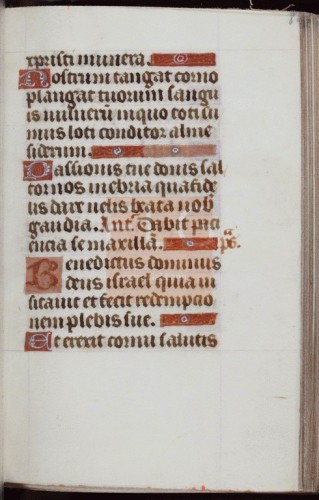 xpristi munera.
Nostrum tangat cor uo
plangat tuorum sangu
is uulnerum inquo toti su
mus loti conditor alme
siderum.
Passionis tue donis sal
tor nos inebria qua fide
lis dare uelis beata nob
gaudia. Ant. Dabit paci
encia se maxillā. ps.
Benedictus dominus
deus israel quia ui
sitauit et fecit redempcio
nem plebis sue.
Et erexit cornu salutis